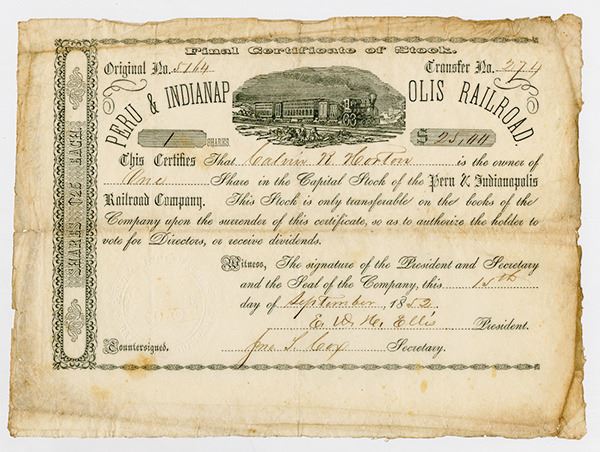 Final Certificate of Stock.
Original No. 5164 Transfer No. 274
PERU & INDIANAPOLIS RAILROAD
1 SHARES. $ 25,00
This Certifies That Calvin H. Horton is the owner of
One Share in the Capital Stock of the Peru & Indianapolis
Railroad Company. This Stock is only transferable on the books of the
Company upon the surrender of this certificate, so as to authorize the holder to
vote for Directors, or receive dividends.
Witness, The signature of the President and Secretary
and the Seal of the Company, this 15th
day of September 1852
E. W. H. Ellis President.
Countersigned. Jno. S. Cox Secretary.
SHARES $25 EACH.